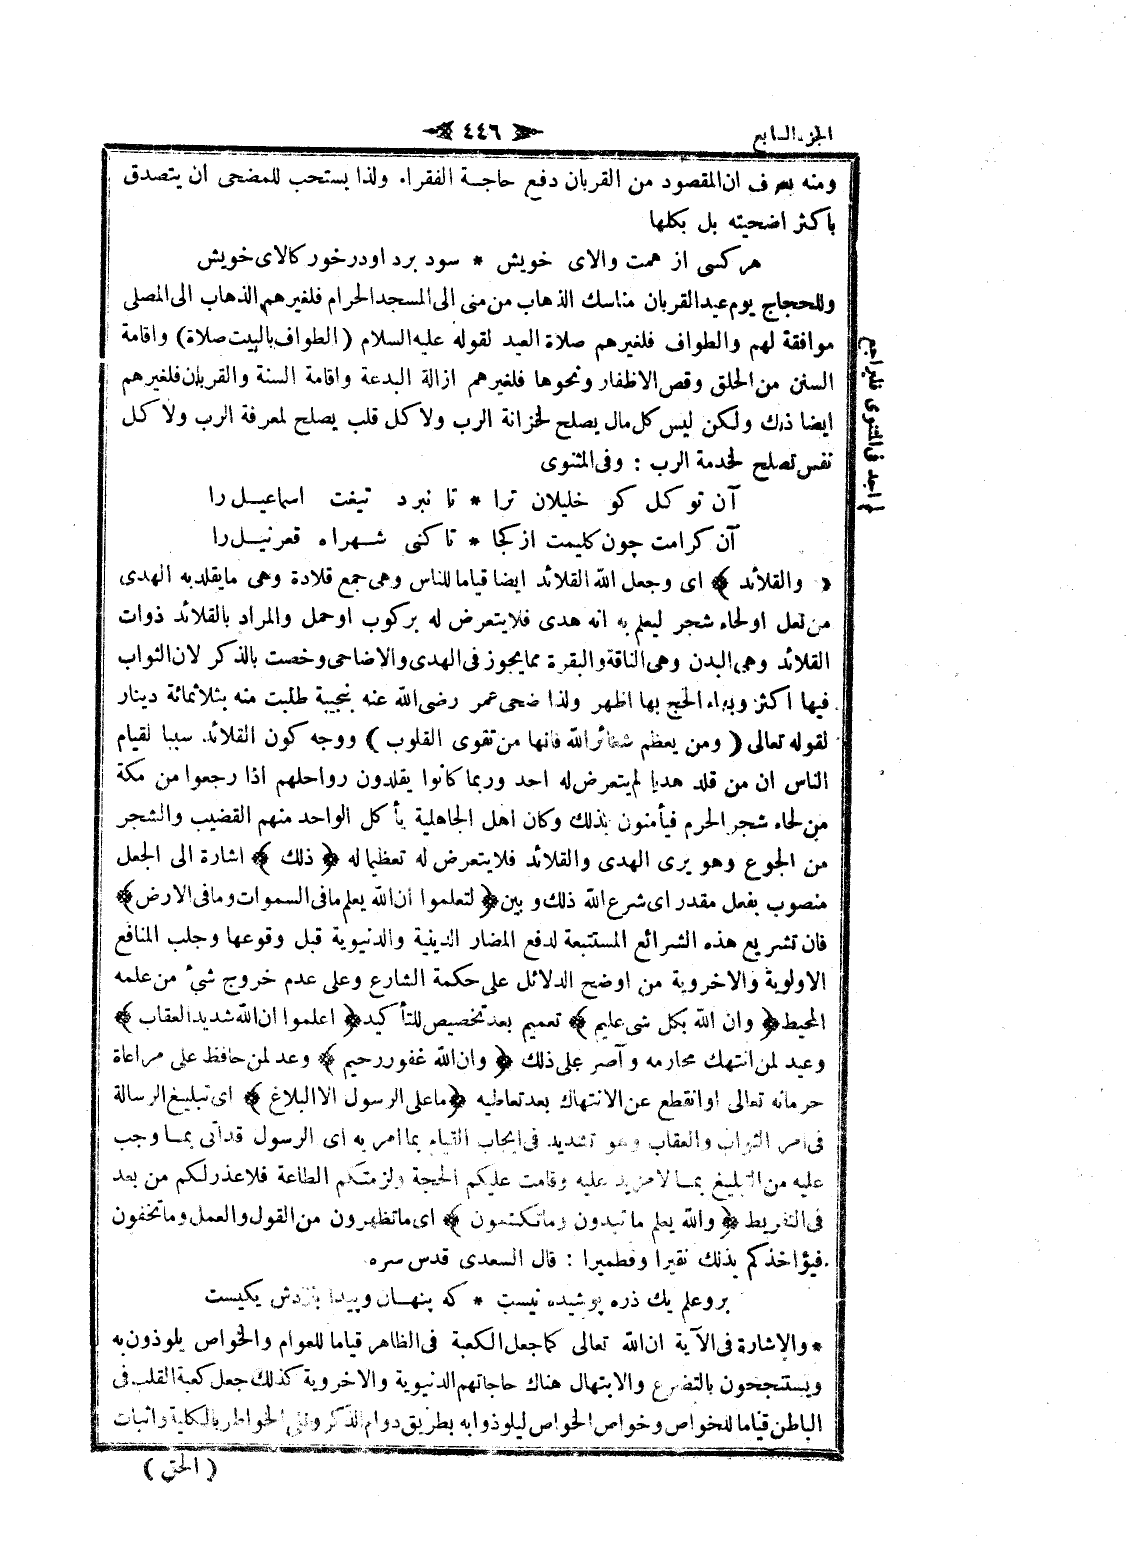 الجزء السابع
٤٤٦
ومنه يعرف ان المقصود من القربان دفع حاجة الفقراء ولذا يستحب للمضحى ان يتصدق
باكثر اضحيته بل بكلها
هركسى از همت والاى خويش * سود برد اودرخور كالاى خويش
وللحجاج يوم عيد القربان مناسك الذهاب من منى الى المسجد الحرام فلغيرهم الذهاب الى المصلى
موافقة لهم والطواف فلغيرهم صلاة العيد لقوله عليه السلام (الطواف بالبيت صلاة) واقامة
السنن من الحلق وقص الاظفار ونحوها فلغيرهم ازالة البدعة واقامة السنة والقربان فلغيرهم
ايضا ذلك ولكن ليس كل مال يصلح لخزانة الرب ولا كل قلب يصلح لمعرفة الرب ولا كل
نفس تصلح لخدمة الرب : وفى المثنوى
آن توكل كو خليلان ترا * تا نبرد تيغت اسماعيل را
آن كرامت چون كليمت از كجا * تا كنى شهراه قعر نيل را
﴿ والقلائد ﴾ اى وجعل الله القلائد ايضا قياما للناس وهى جمع قلادة وهى مايقلد به الهدى
من نعل اولحاء شجر ليعلم به انه هدى فلايتعرض له بركوب اوحمل والمراد بالقلائد ذوات
القلائد وهى البدن وهى الناقة والبقرة مما يجوز فى الهدى والاضاحى وخصت بالذكر لان الثواب
فيها اكثر وبهاء الحج بها اظهر ولذا ضحى عمر رضى الله عنه بنجيبة طلبت منه بثلاثمائة دينار
لقوله تعالى ( ومن يعظم شعائر الله فانها من تقوى القلوب ) ووجه كون القلائد سببا لقيام
الناس ان من قلد هديا لم يتعرض له احد وربما كانوا يقلدون رواحلهم اذا رجعوا من مكة
من لحاء شجر الحرم فيأمنون بذلك وكان اهل الجاهلية يأكل الواحد منهم القضيب والشجر
من الجوع وهو يرى الهدى والقلائد فلايتعرض له تعظيما له ﴿ ذلك ﴾ اشارة الى الجعل
منصوب بفعل مقدر اى شرع الله ذلك وبين ﴿ لتعلموا ان الله يعلم مافى السموات ومافى الارض ﴾
فان تشريع هذه الشرائع المستتبعة لدفع المضار الدينية والدنيوية قبل وقوعها وجلب المنافع
الاولوية والاخروية من اوضح الدلائل على حكمة الشارع وعلى عدم خروج شئ من علمه
المحيط ﴿ وان الله بكل شى عليم ﴾ تعميم بعد تخصيص للتأكيد ﴿ اعلموا ان الله شديد العقاب ﴾
وعيد لمن انتهك محارمه وآصر على ذلك ﴿ وان الله غفور رحيم ﴾ وعد لمن حافظ على مراعاة
حرماته تعالى اوانقطع عن الانتهاك بعد تعاطيه ﴿ ماعلى الرسول الا البلاغ ﴾ اى تبليغ الرسالة
فى امر الثواب والعقاب وهو تشديد فى ايجاب القيام بما امر به اى الرسول قد اتى بما وجب
عليه من التبليغ بما لا مزيد عليه وقامت عليكم الحجة ولزمتكم الطاعة فلا عذر لكم من بعد
فى التفريط ﴿ والله يعلم ماتبدون وماتكتمون ﴾ اى ماتظهرون من القول والعمل وماتخفون
فيؤاخذكم بذلك نقيرا وقطميرا : قال السعدى قدس سره
بروعلم يك ذره پوشيده نيست * كه پنهان وپيدا بنزدش يكيست
* والاشارة فى الآية ان الله تعالى كما جعل الكعبة فى الظاهر قياما للعوام والخواص يلوذون به
ويستنجحون بالتضرع والابتهال هناك حاجاتهم الدنيوية والاخروية كذلك جعل كعبة القلب فى
الباطن قياما للخواص وخواص الخواص ليلوذوا به بطريق دوام الذكر ونفى الخواطر بالكلية واثبات
( الحق )
لم اجد فى المثنوى فليراجع